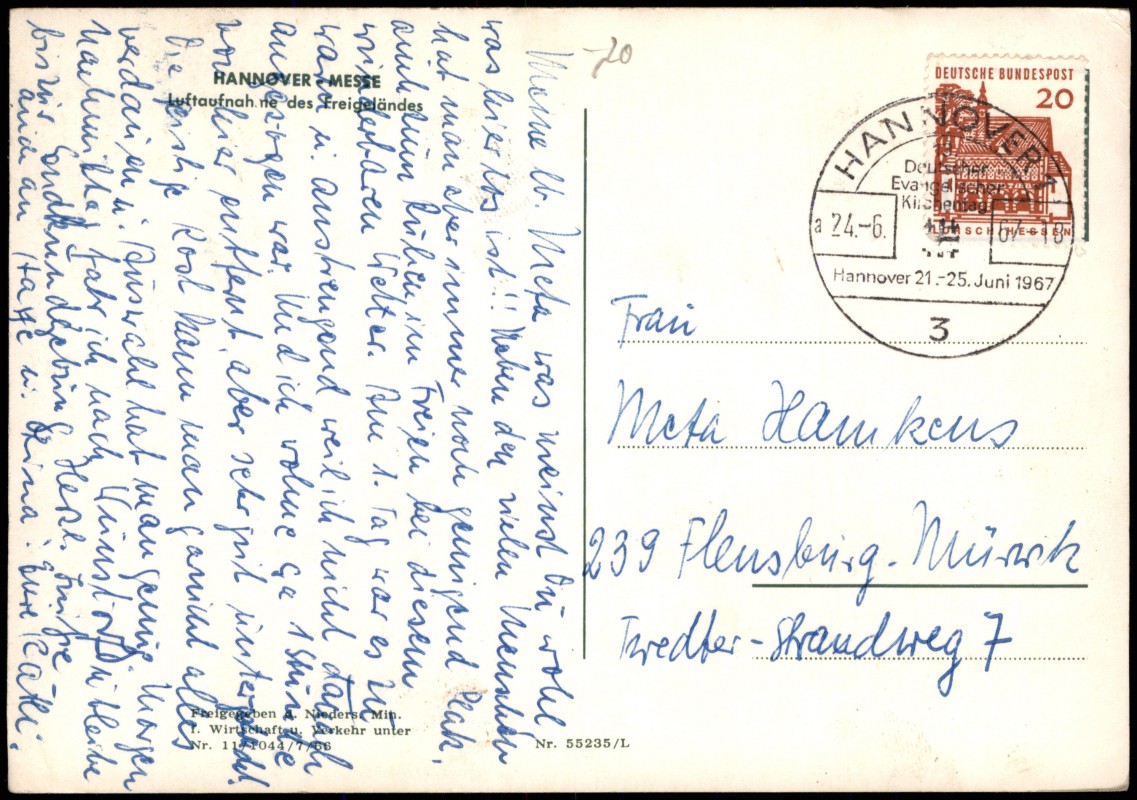 HANNOVER - MESSE
Luftaufnahme des Freigeländes
Meine lb. Meta was meinst Du wohl
was hier los ist!! Neben den vielen Menschen
hat man aber immer noch genügend Platz,
auch zum Ruhen im Freien bei diesem
wunderbaren Wetter. Am 1. Tag war es zu
warm u. anstrengend weil ich nicht danach
angezogen war. Und ich wohne ca 1 Stunde
von hier entfernt, aber sehr gut untergebracht.
Die geistige Kost kann man garnicht alles
verdauen u. Auswahl hat man genug. Morgen
nachmittag fahr ich nach Wunstorf u. bleibe
bis zur Landkundgebung. Herzl. Grüße
auch an Katje u. Erna. Eure Käthe.
Freigegeben d. Nieders. Min.
f. Wirtschaft u. Verkehr unter
Nr. 11/1044/7/66
Nr. 55235/L
20
DEUTSCHE BUNDESPOST
20
LORSCH HESSEN
HANNOVER 1
Deutscher
Evangelischer
Kirchentag
a 24.-6. 67-18
Hannover 21.-25. Juni 1967
3
Frau
Meta Hamkens
239 Flensburg-Mürwik
Twedter-Strandweg 7